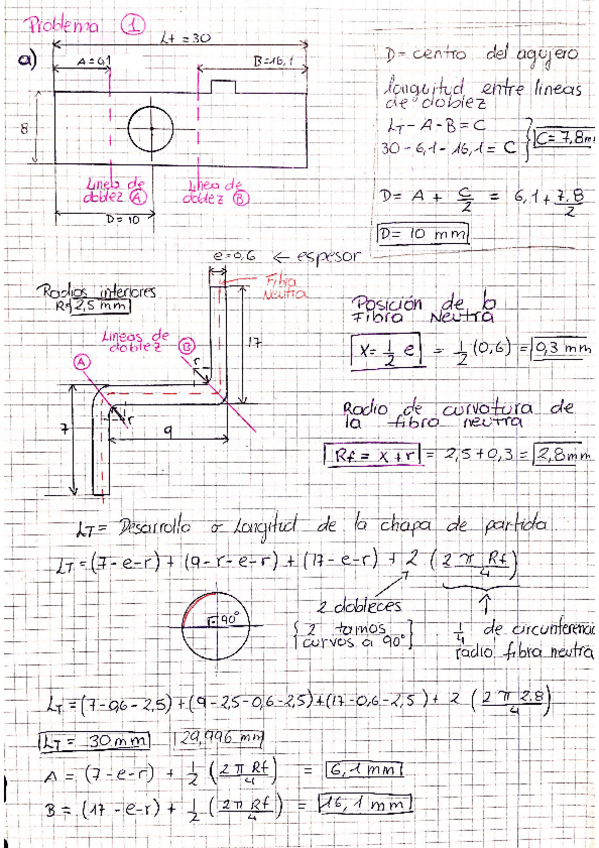 Problema ①
a)
LT = 30
A = 6,1
B = 16,1
8
Línea de doblez Ⓐ
Línea de doblez Ⓑ
D = 10
D = centro del agujero
longuitud entre líneas
de doblez
LT - A - B = C
30 - 6,1 - 16,1 = C
C = 7,8 mm
D = A + C/2 = 6,1 + 7,8/2
D = 10 mm
e = 0,6 ← espesor
Fibra
Neutra
Radios interiores
R= 2,5 mm
Líneas de
doblez
Ⓐ
Ⓑ
r
17
r
7
9
Posición de la
Fibra Neutra
X = 1/2 e = 1/2 (0,6) = 0,3 mm
Radio de curvatura de
la fibra neutra
Rf = x + r = 2,5 + 0,3 = 2,8 mm
LT = Desarrollo o Longitud de la chapa de partida
LT = (7-e-r) + (9-r-e-r) + (17-e-r) + 2 (2 π Rf/4)
r=90°
2 dobleces
{2 tramos
curvos a 90°}
1/4 de circunferencia
radio fibra neutra
LT = (7-0,6-2,5) + (9-2,5-0,6-2,5) + (17-0,6-2,5) + 2 (2 π 2,8/4)
LT = 30 mm 29,996 mm
A = (7-e-r) + 1/2 (2 π Rf/4) = 6,1 mm
B = (17-e-r) + 1/2 (2 π Rf/4) = 16,1 mm